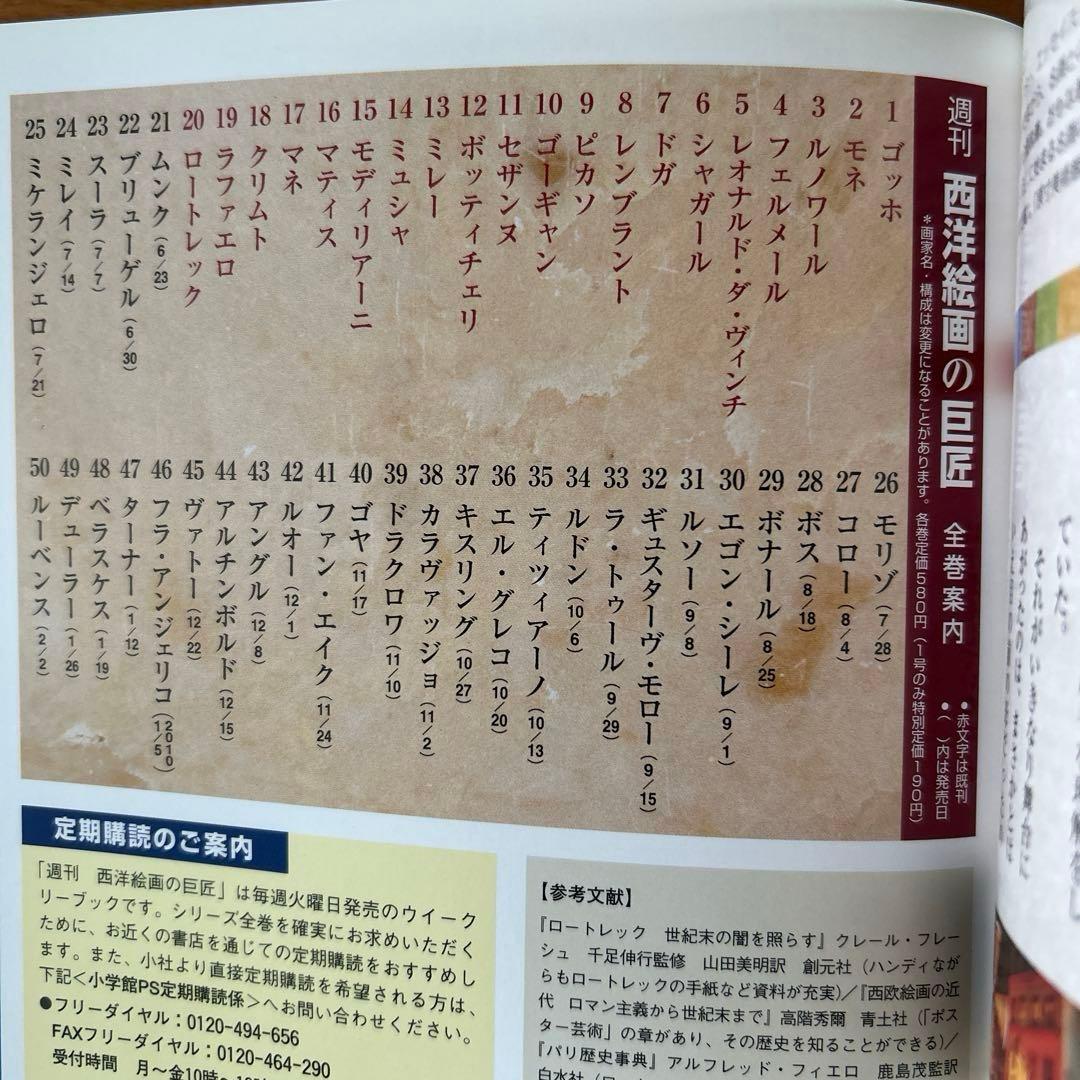 週刊 西洋絵画の巨匠 全巻案内
●赤文字は既刊
●( )内は発売日
＊画家名・構成は変更になることがあります。各巻定価580円(1号のみ特別定価190円)
1 ゴッホ
2 モネ
3 ルノワール
4 フェルメール
5 レオナルド・ダ・ヴィンチ
6 シャガール
7 ドガ
8 レンブラント
9 ピカソ
10 ゴーギャン
11 セザンヌ
12 ボッティチェリ
13 ミレー
14 ミュシャ
15 モディリアーニ
16 マティス
17 マネ
18 クリムト
19 ラファエロ
20 ロートレック
21 ムンク(6/23)
22 ブリューゲル(6/30)
23 スーラ(7/7)
24 ミレイ(7/14)
25 ミケランジェロ(7/21)
26 モリゾ(7/28)
27 コロー(8/4)
28 ボス(8/18)
29 ボナール(8/25)
30 エゴン・シーレ(9/1)
31 ルソー(9/8)
32 ギュスターヴ・モロー(9/15)
33 ラ・トゥール(9/29)
34 ルドン(10/6)
35 ティツィアーノ(10/13)
36 エル・グレコ(10/20)
37 キスリング(10/27)
38 カラヴァッジョ(11/2)
39 ドラクロワ(11/10)
40 ゴヤ(11/17)
41 ファン・エイク(11/24)
42 ルオー(12/1)
43 アングル(12/8)
44 アルチンボルド(12/15)
45 ヴァトー(12/22)
46 フラ・アンジェリコ(2010 1/5)
47 ターナー(1/12)
48 ベラスケス(1/19)
49 デューラー(1/26)
50 ルーベンス(2/2)
定期購読のご案内
「週刊 西洋絵画の巨匠」は毎週火曜日発売のウイーク
リーブックです。シリーズ全巻を確実にお求めいただく
ために、お近くの書店を通じての定期購読をおすすめし
ます。また、小社より直接定期購読を希望される方は、
下記<小学館PS定期購読係>へお問い合わせください。
●フリーダイヤル：0120-494-656
FAXフリーダイヤル：0120-464-290
受付時間 月〜金10時〜
【参考文献】
『ロートレック 世紀末の闇を照らす』クレール・フレー
シュ 千足伸行監修 山田美明訳 創元社(ハンディなが
らもロートレックの手紙など資料が充実)／『西欧絵画の近
代 ロマン主義から世紀末まで』高階秀爾 青土社(「ポス
ター芸術」の章があり、その歴史を知ることができる)／
『パリ歴史事典』アルフレッド・フィエロ 鹿島茂監訳
白水社
ていた。
それがいきなり舞台に
あがったのは、まさかとは